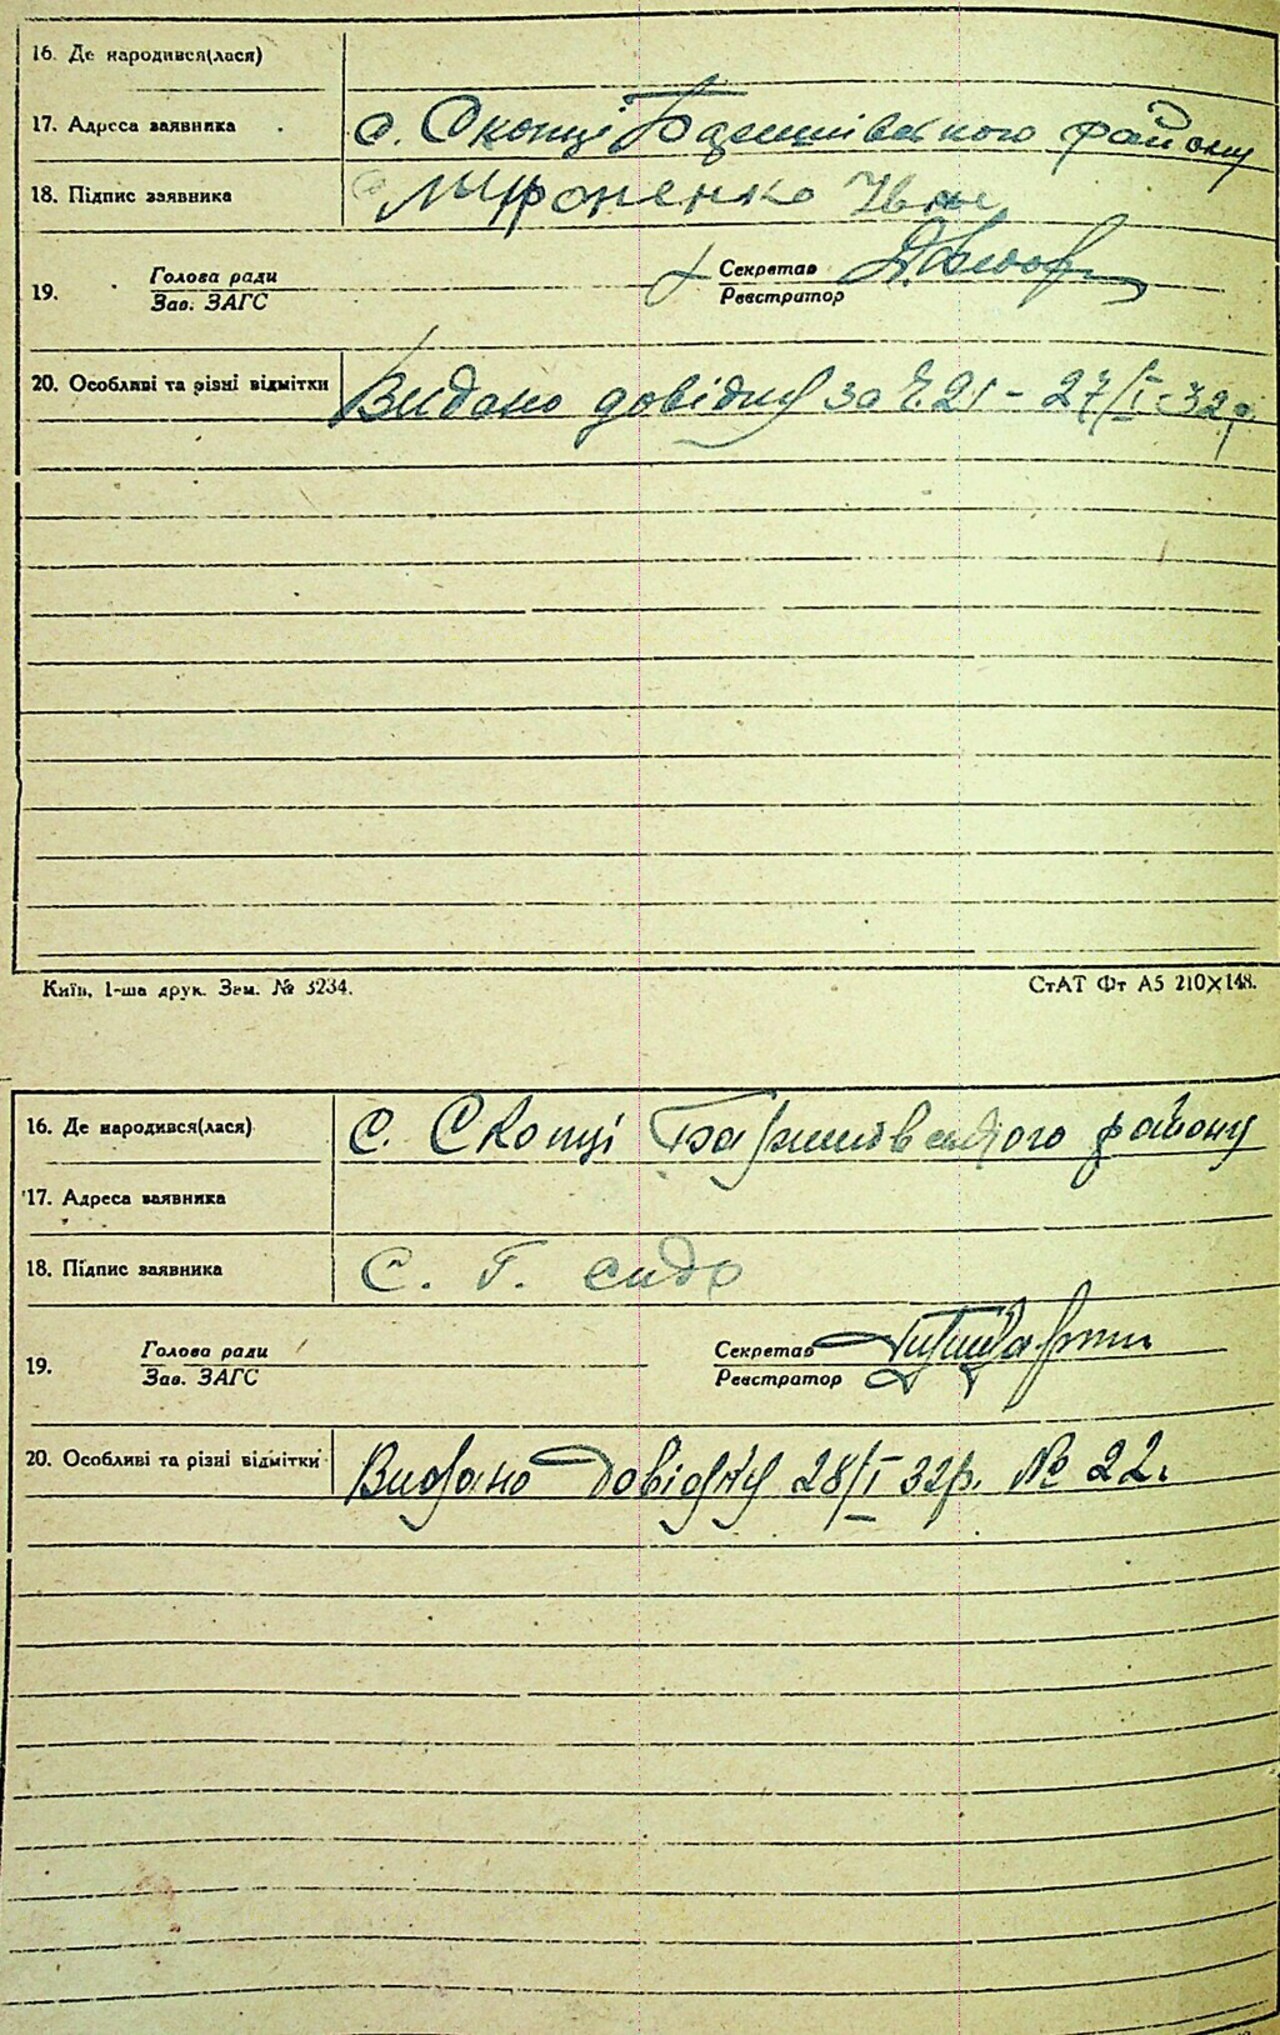 16. Де народився(лася)
17. Адреса заявника с. Скопці Баришівського району
18. Підпис заявника Мироненко Іван
19. Голова ради Секретар
Зав. ЗАГС Реєстратор
20. Особливі та різні відмітки Видано довідку за №21 - 27/I-32р
Київ, 1-ша друк. Зам. № 3234. СтАТ Фт А5 210×148.
16. Де народився(лася) С. Скопці Баришівського району
17. Адреса заявника
18. Підпис заявника С. Г. сидо
19. Голова ради Секретар
Зав. ЗАГС Реєстратор
20. Особливі та різні відмітки Видано довідку 28/I 32р. № 22.